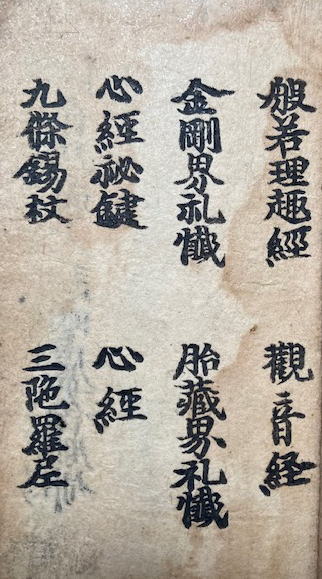 般若理趣經
觀音経
金剛界礼懺
胎藏界礼懺
心經祕鍵
心經
九條錫杖
三陁羅尼